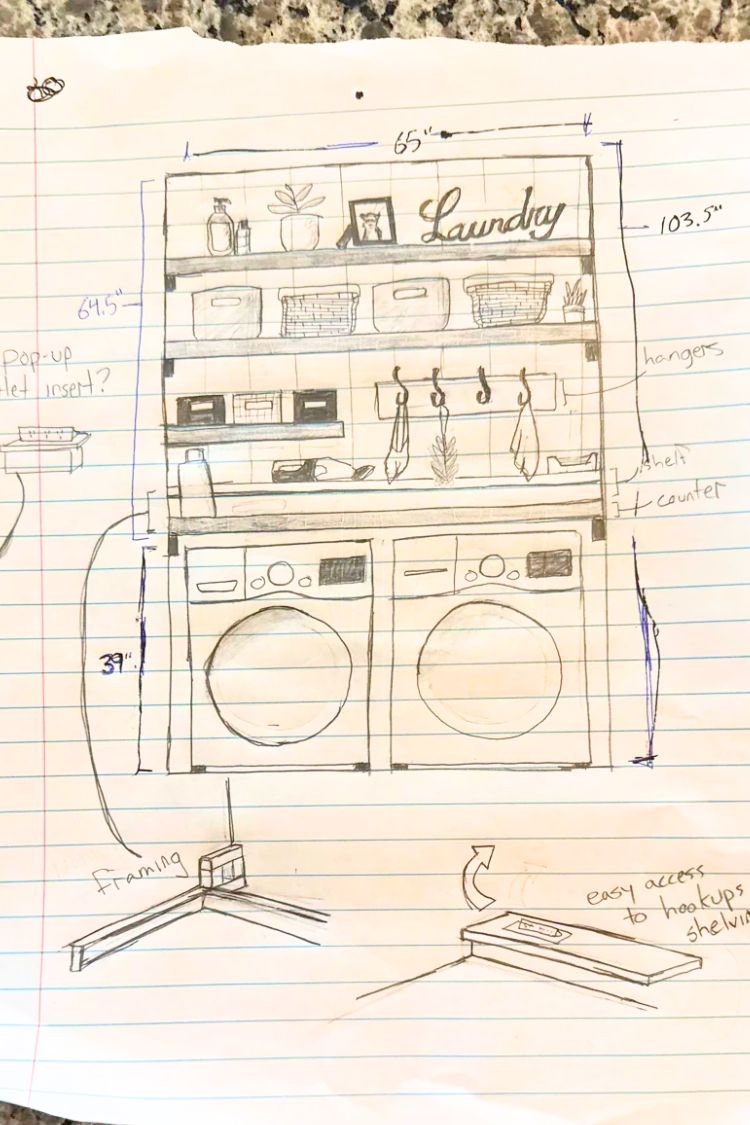 65"
103.5"
Laundry
64.5"
Pop-up
let insert?
hangers
shelf
counter
39"
framing
easy access
to hookups
shelvin